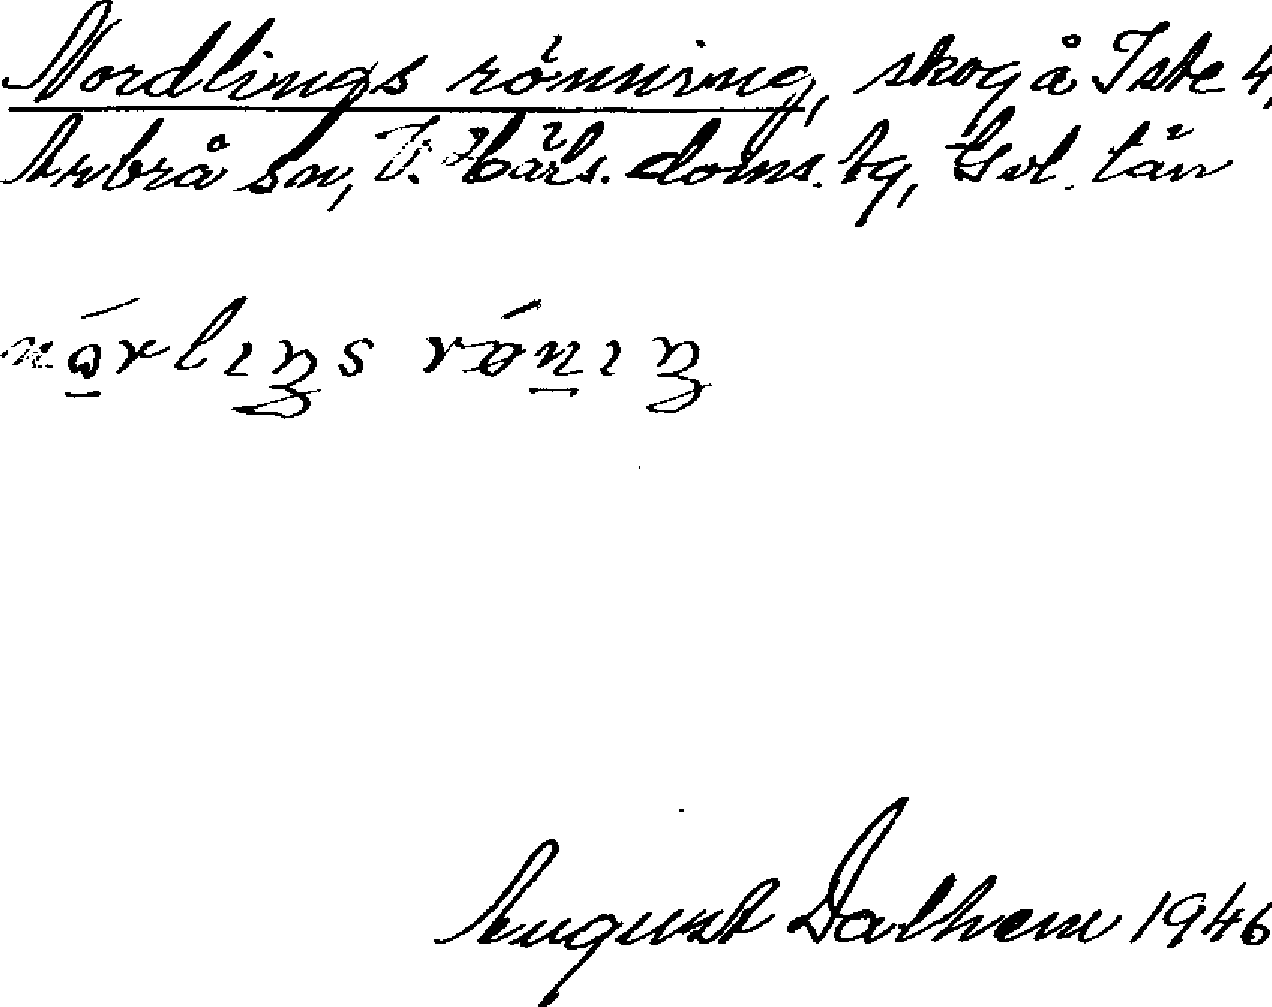 Nordlings rönning, skog å Iste 4,
Arbrå sn, V. Häls. doms. tg, Gvl. län
nǻrlıŋs rǿnıŋ
August Dalhem 1946